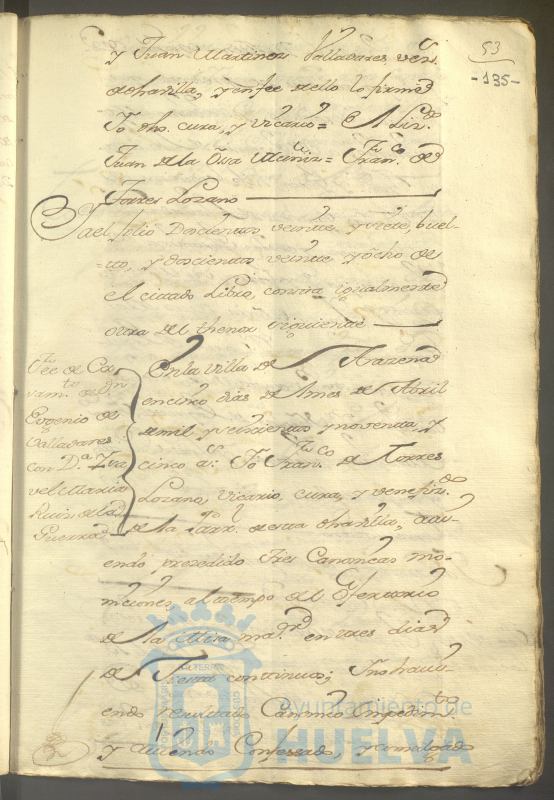 53
-135-
y Juan Martinez Valladares vecs.
de ha villa, y en fee de ello lo firmé
Yo dho. cura, y vicario = Lizdo.
Juan de la Ova Muñiz = Franco. de
Torres Lozano
Y a el folio Doscientos, veinte, y siete, buel-
to, y doscientos veinte y ocho de
el citado Libro, consta igualmente
otra del thenor siguiente
Fee de Ca
samto. de Dn
Eugenio de
Valladares
con Da. Ysa
vel Maria
Ruiz de la
Guerra
En la villa de Arazena
en cinco dias del mes de Abril
de mil y seiscientos y noventa, y
cinco as. Yo Franco. de Torres
Lozano, Vicario, cura, y venefizdo.
de la Parrl. de esta dha villa, avi-
endo prosedido tres Canonicas mo-
niciones, al tiempo del Ofertorio
de la Misa mayr. en tres dias
de fiesta continuos; Y no havi-
endo resultado Canonico impedimto.
y aviendo Confessado, y comulgado
Ayuntamiento de
HUELVA